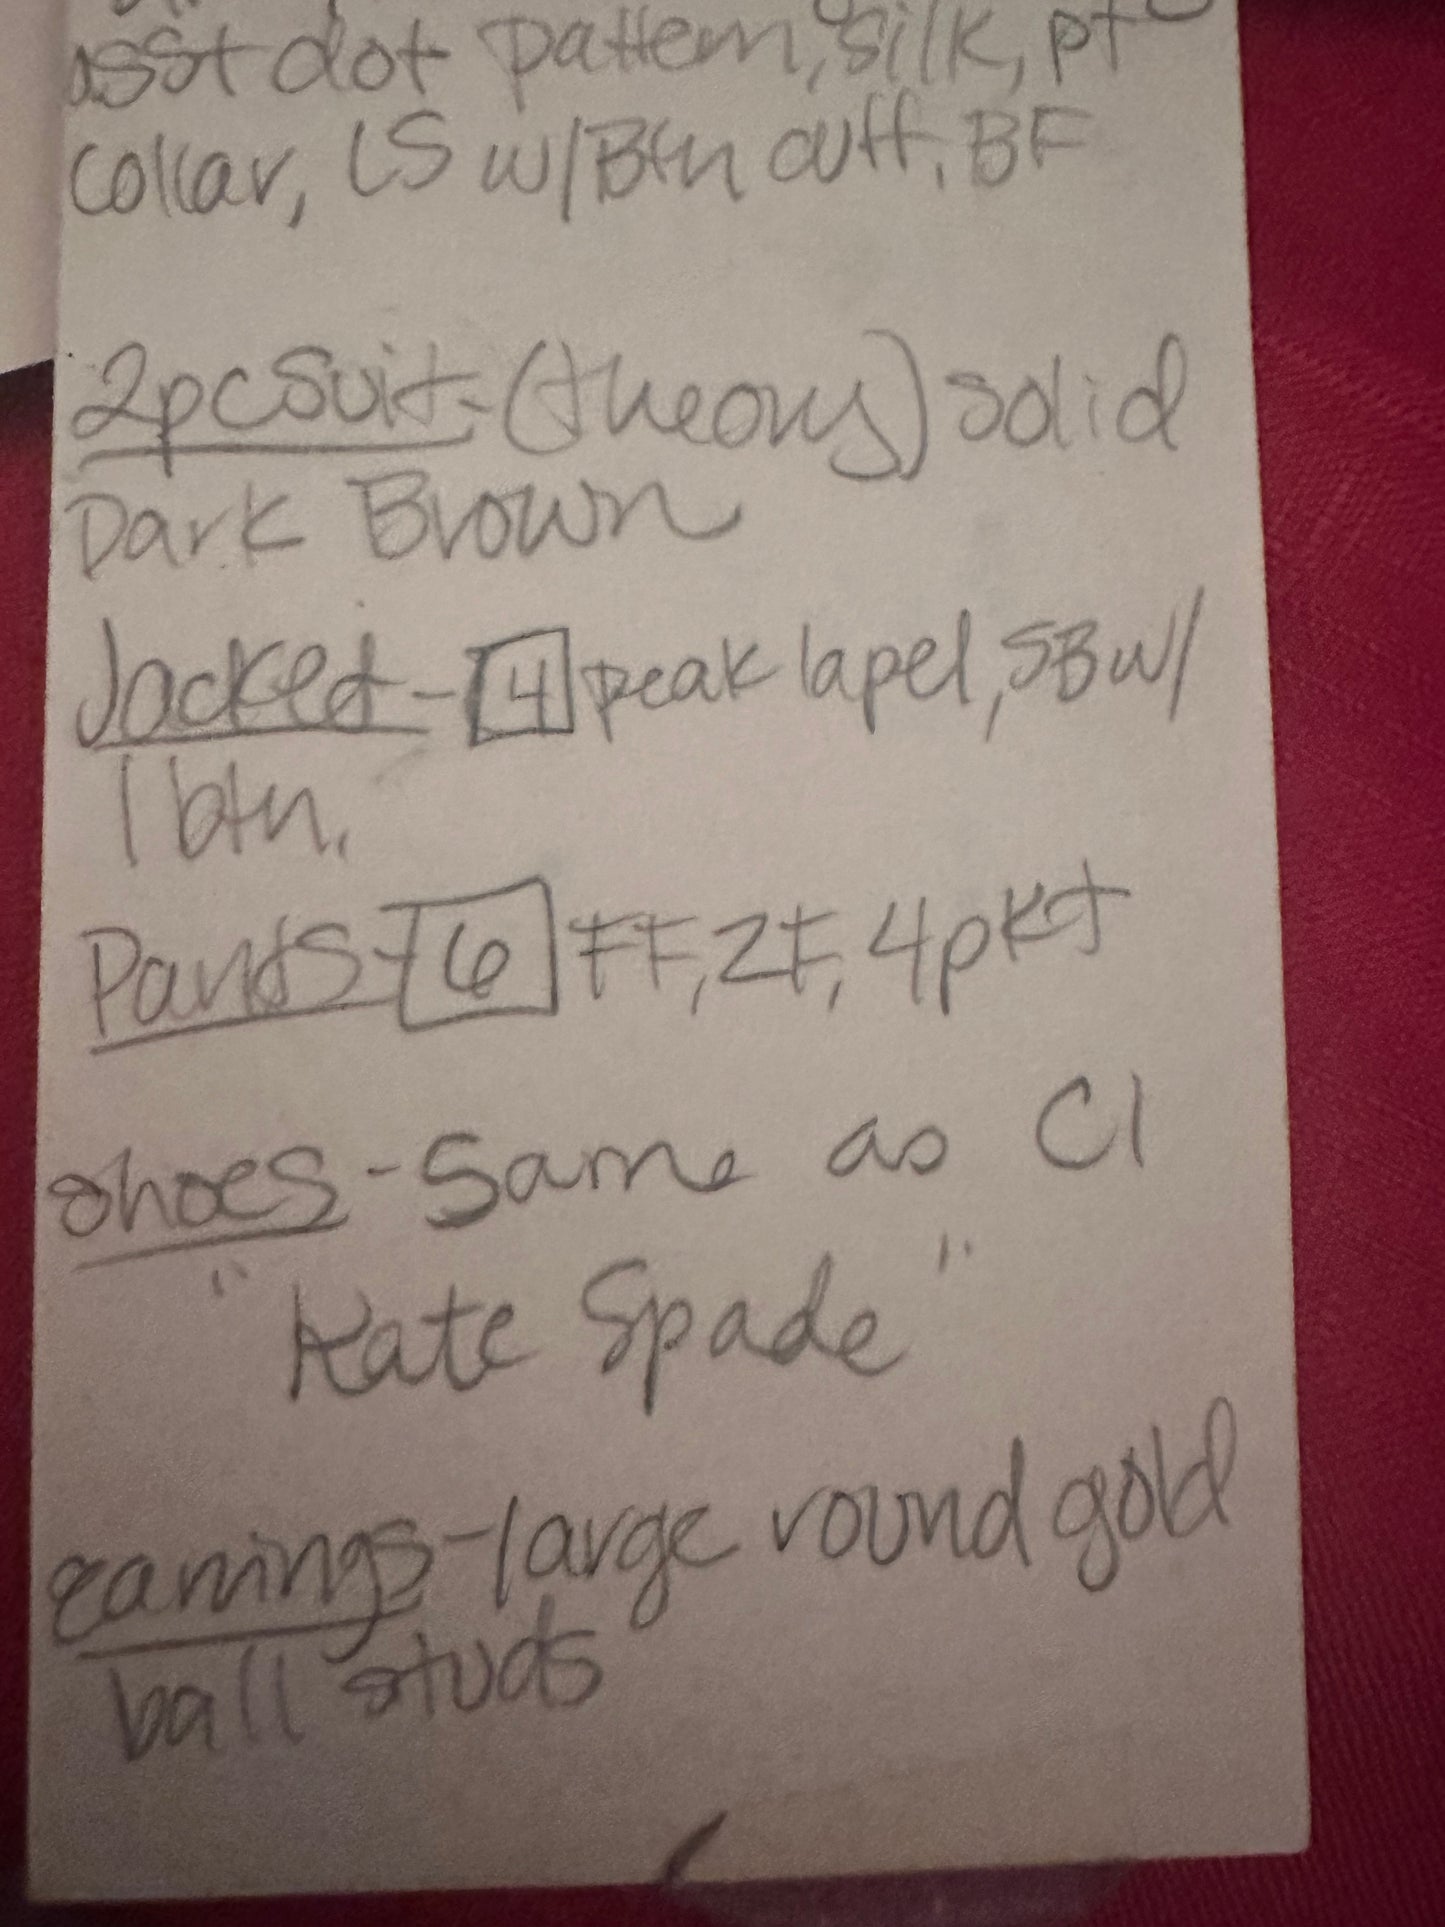 asst dot pattern, silk, pt
collar, LS w/Btn cuff, BF
2pc Suit - (theory) solid
Dark Brown
Jacket - 4 peak lapel, SB w/
1 btn.
Pants - 6 FF, ZF, 4pkt
shoes - Same as C1
"Kate Spade"
earrings - large round gold
ball studs